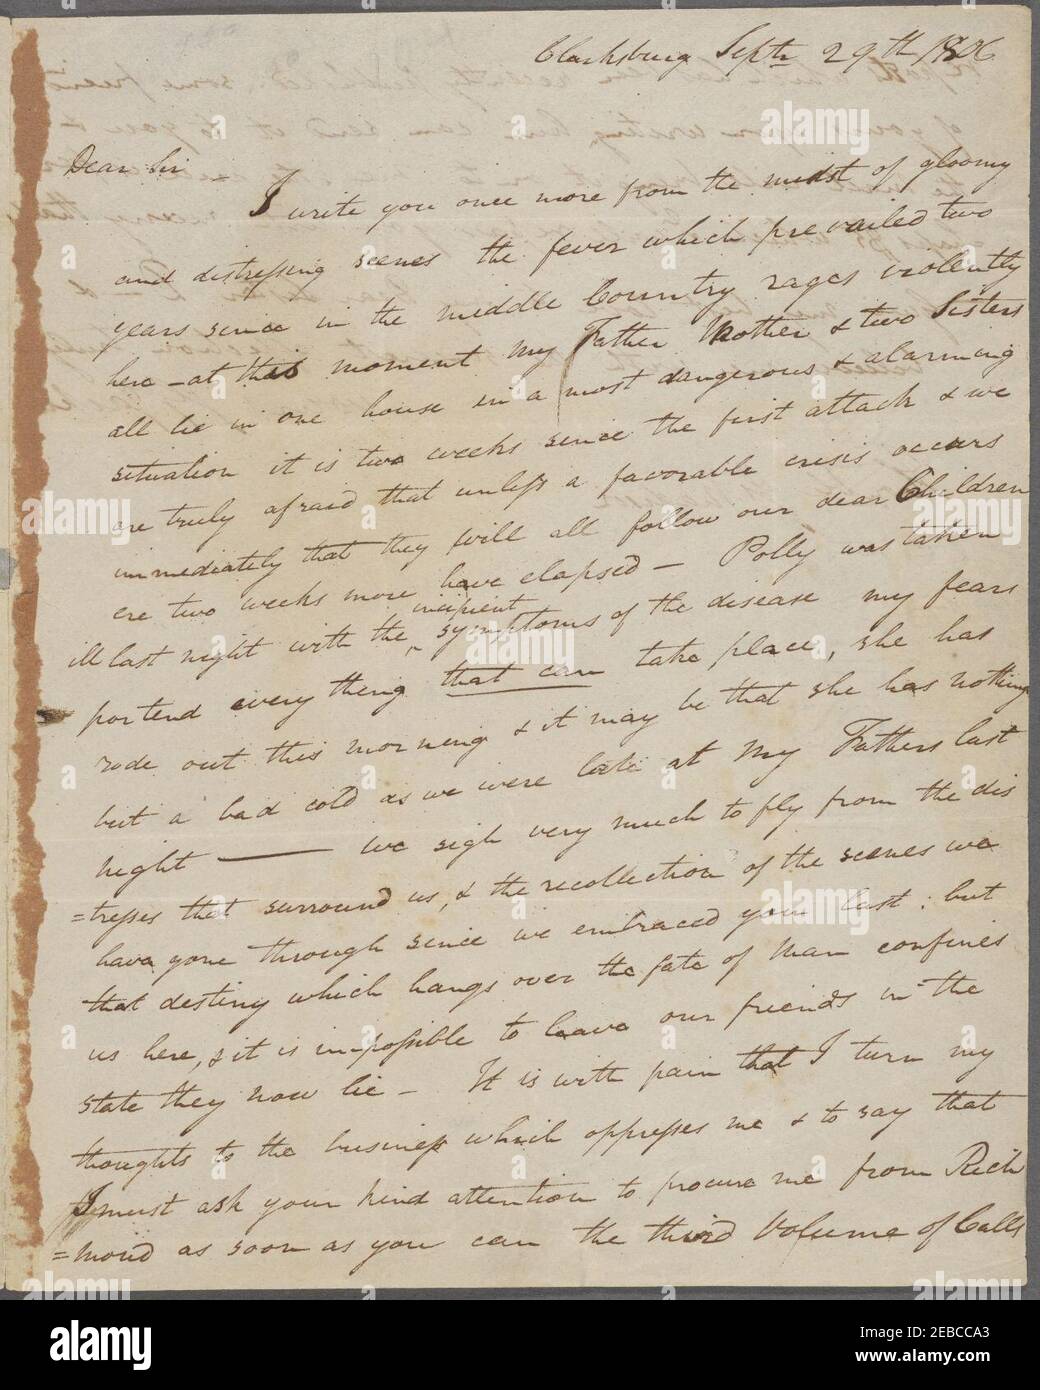 Clarksburg Septr 29th 1806
Dear Sir -
I write you once more from the midst of gloomy
and distressing scenes the fever which prevailed two
years since in the middle Country rages violently
here - at this moment my Father Mother & two Sisters
all lie in one house in a most dangerous & alarming
situation it is two weeks since the first attack & we
are truly afraid that unless a favorable crisis occurs
immediately that they will all follow our dear Children
ere two weeks more have elapsed - Polly was taken
incipient
ill last night with the ‸ symptoms of the disease my fears
portend every thing that can take place, she has
rode out this morning & it may be that she has nothing
but a bad cold as we were late at my Fathers last
night — we sigh very much to fly from the dis
=tresses that surround us, & the recollection of the scenes we
have gone through since we embraced you last: but
that destiny which hangs over the fate of Man confines
us here, & it is impossible to leave our friends in the
state they now lie - It is with pain that I turn my
thoughts to the business which oppresses me & to say that
I must ask your kind attention to procure me from Rich
=mond as soon as you can the third Volume of Calls
alamy
Image ID: 2EBCCA3
www.alamy.com